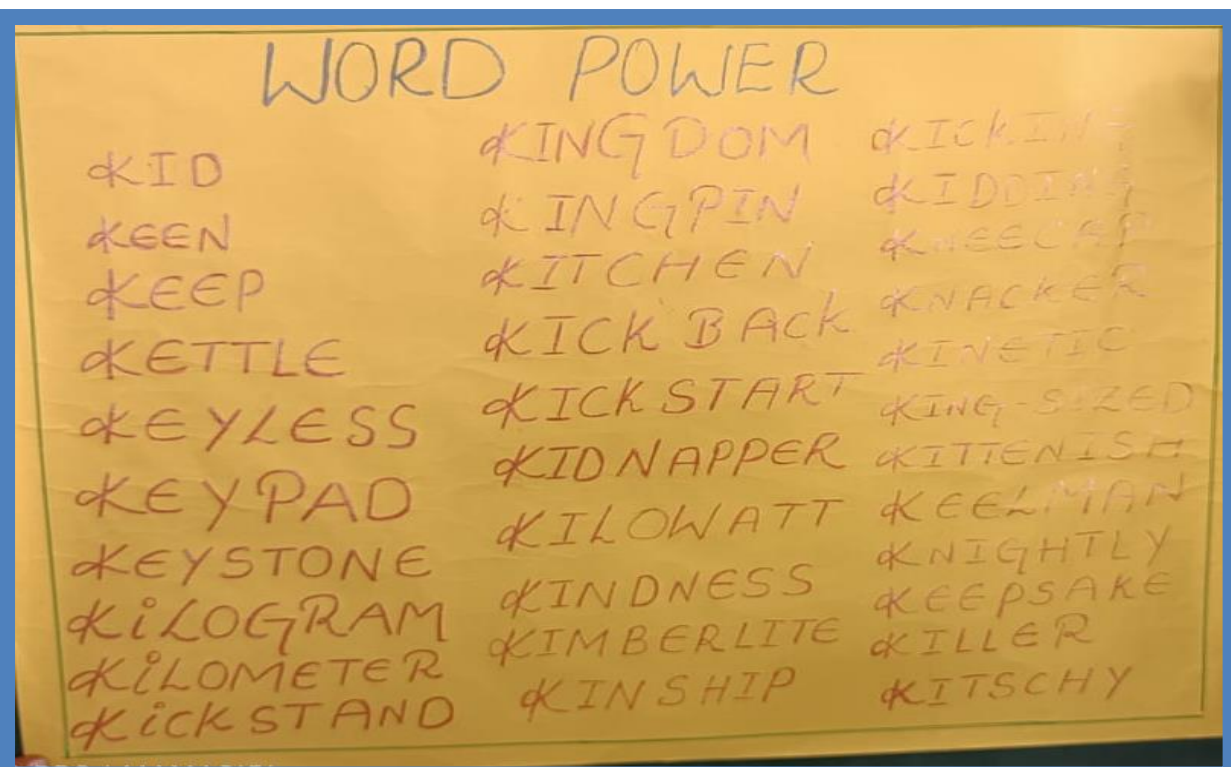 WORD POWER
KID
KEEN
KEEP
KETTLE
KEYLESS
KEYPAD
KEYSTONE
KiLOGRAM
KiLOMETER
KiCKSTAND
KINGDOM
KINGPIN
KITCHEN
KICK BACK
KICK START
KIDNAPPER
KILOWATT
KINDNESS
KIMBERLITE
KINSHIP
KICKING
KIDDING
KNEECAP
KNACKER
KINETIC
KING-SIZED
KITTENISH
KEELMAN
KNIGHTLY
KEEPSAKE
KILLER
KITSCHY